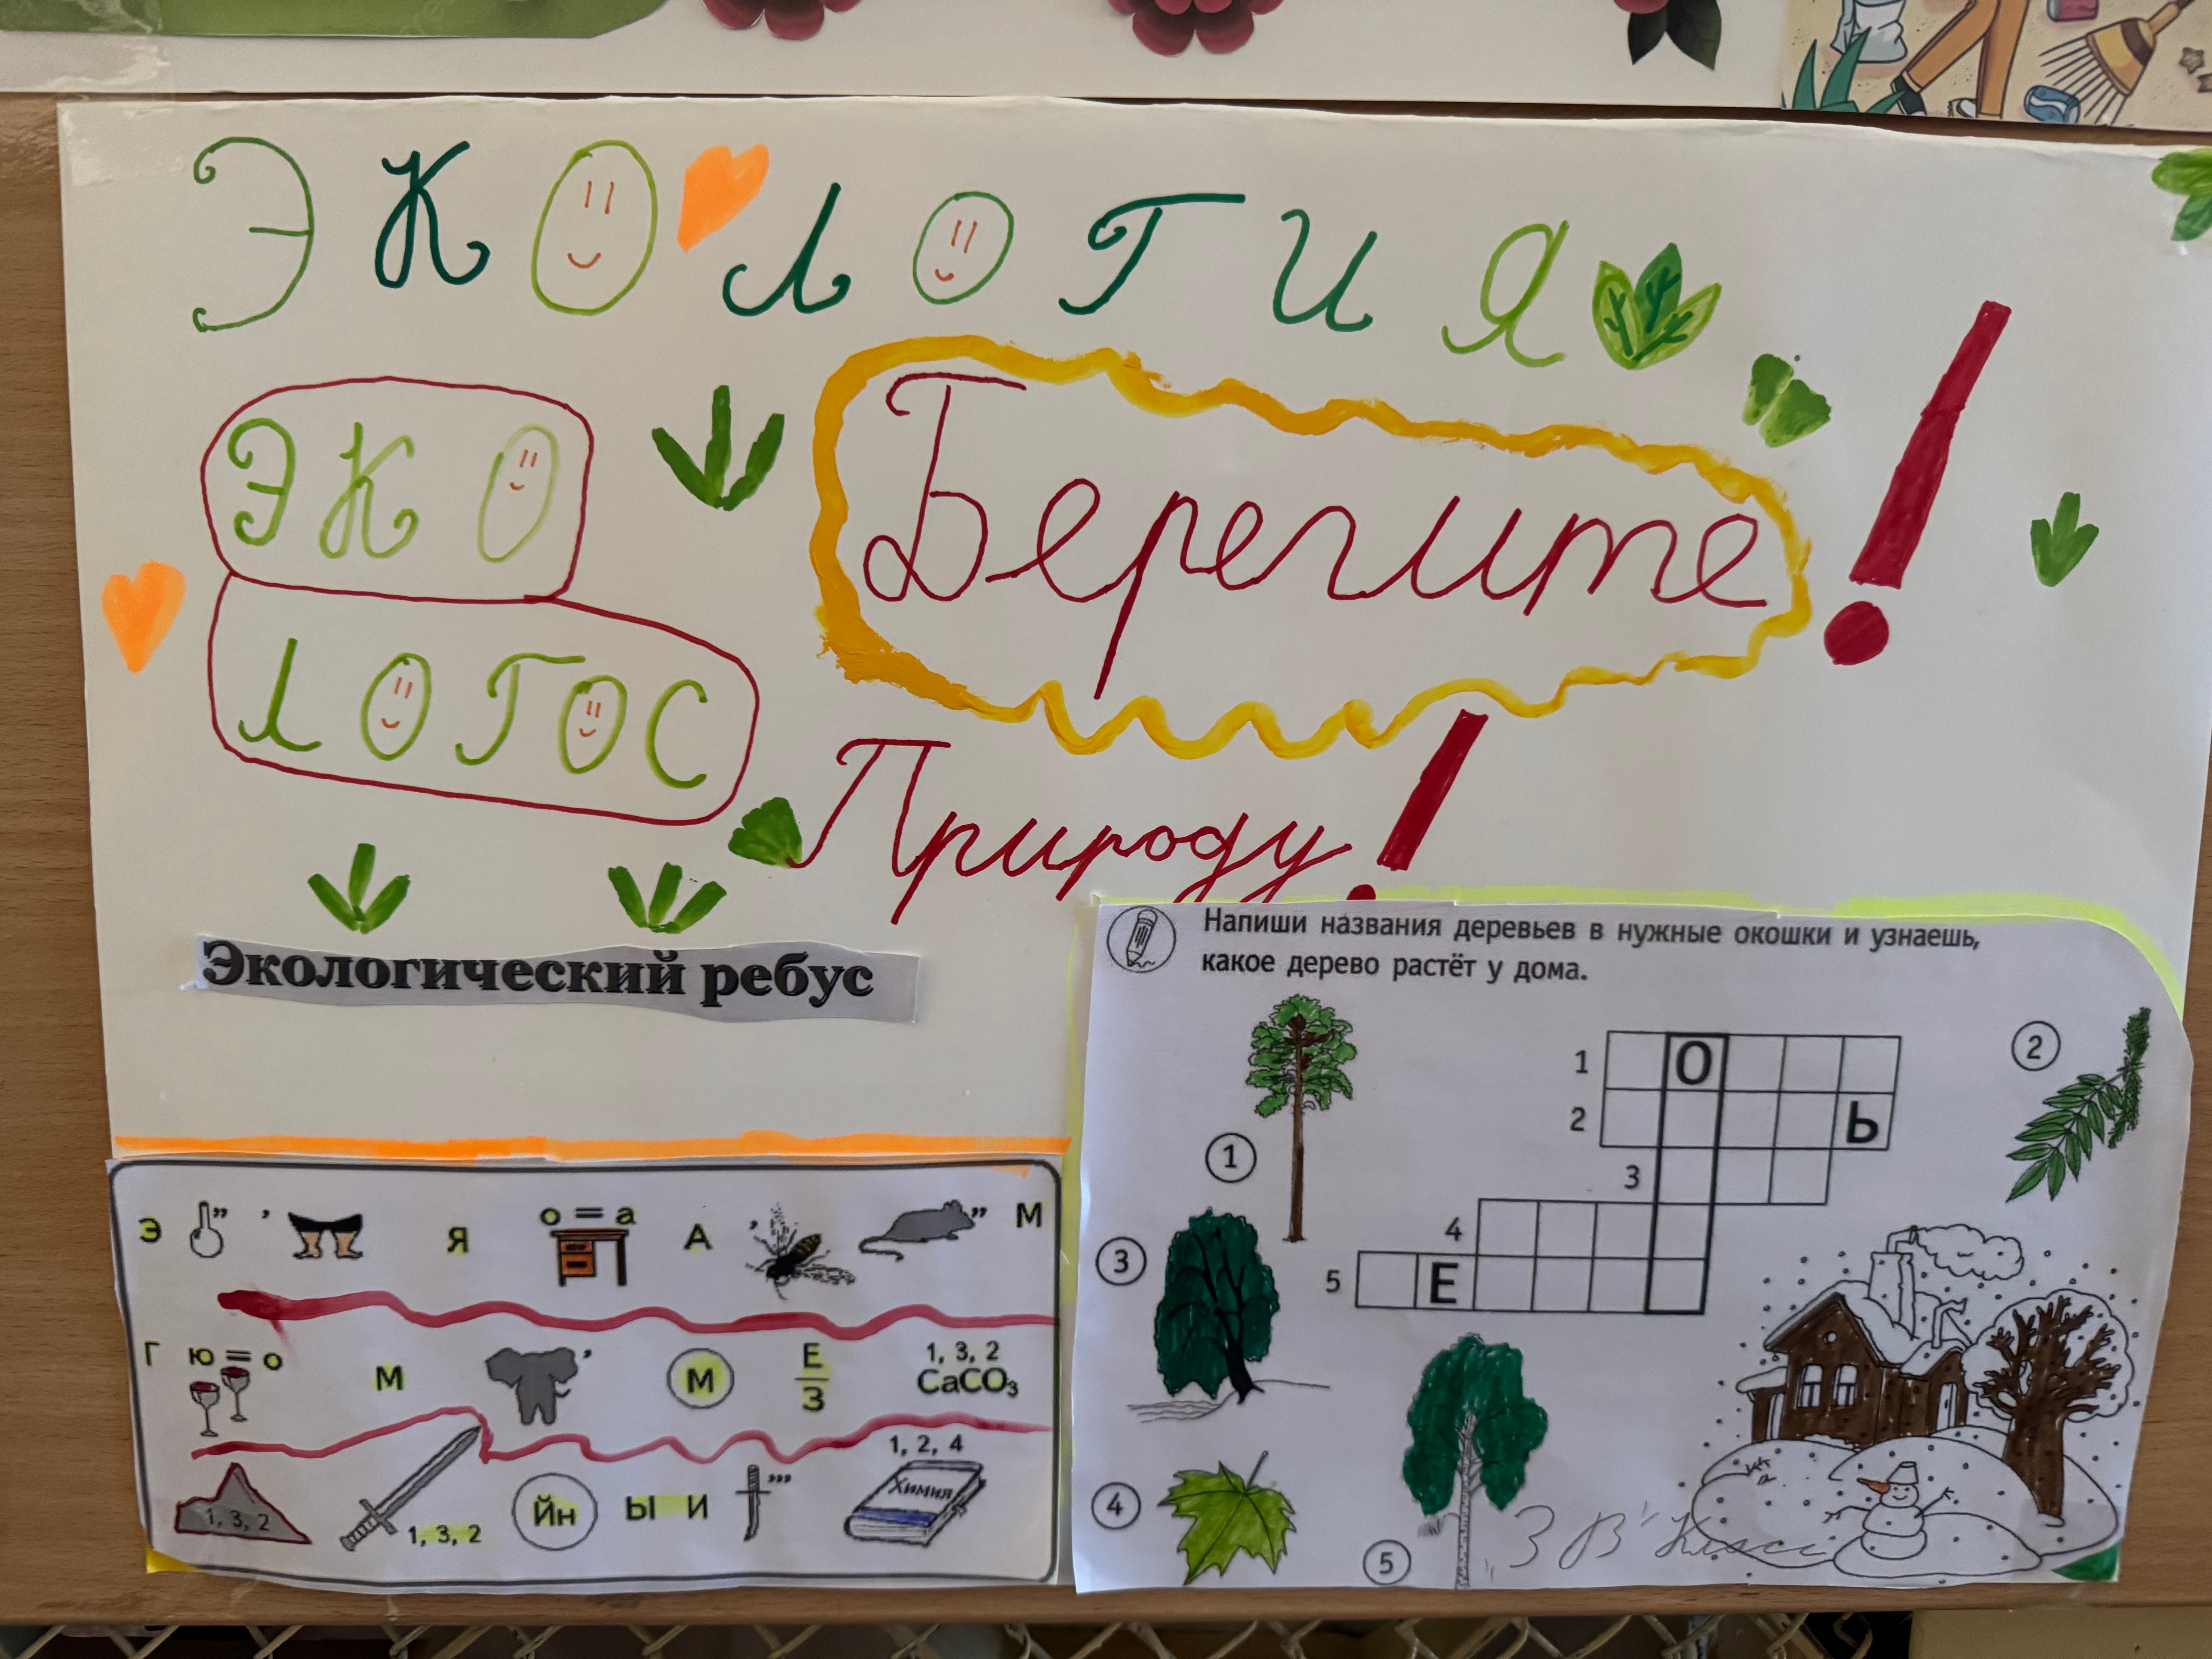 ЭКОЛОГИЯ
ЭКО
ЛОГОС
Берегите!
Природу!
Экологический ребус
Э ” ’ Я о = а А ’ ” М
Г ю = о М ’ М Е/З 1, 3, 2 CaCO₃
1, 3, 2 1, 3, 2 Йн Ы И ’’’ 1, 2, 4 Химия
Напиши названия деревьев в нужные окошки и узнаешь,
какое дерево растёт у дома.
1 О
2 Ь
3
4
5 Е
1
2
3
4
5
3 "В" Класс